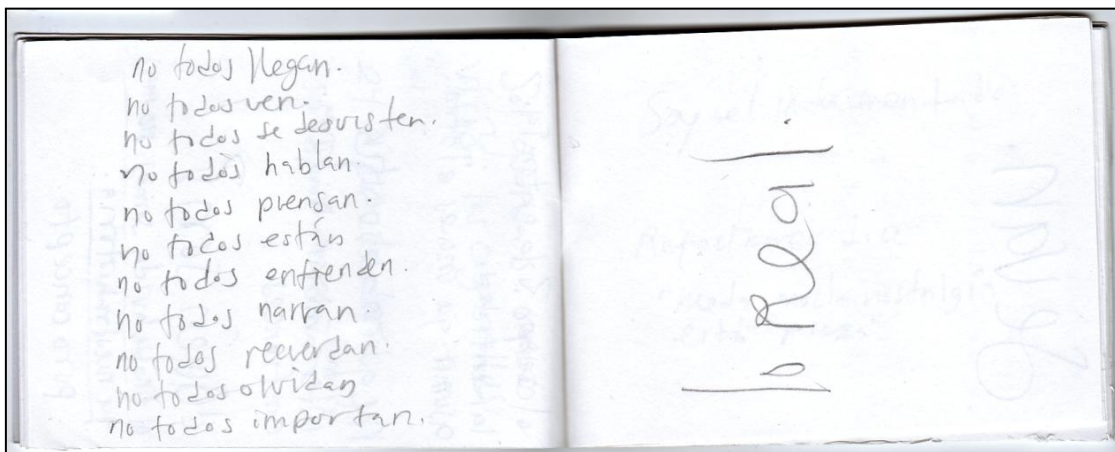 no todos llegan.
no todos ven.
no todos se desvisten.
no todos hablan.
no todos piensan.
no todos están
no todos entienden.
no todos narran.
no todos recuerdan.
no todos olvidan
no todos importan.
lo real.